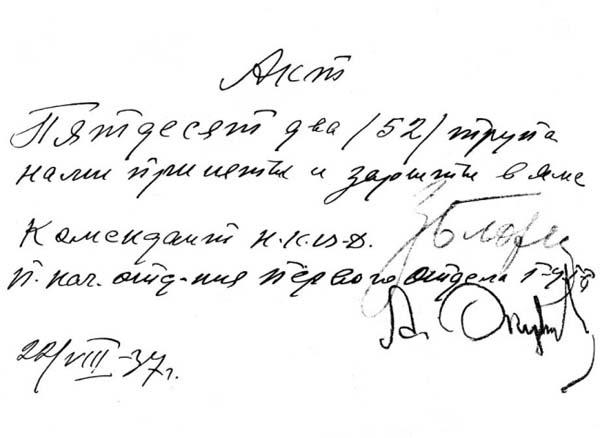 Акт
Пятдесят два /52/ трупа
нами приняты и зарыты в яме
Комендант Н.К.В.Д.
П. нач. отд-ния первого отдела
22/VIII-37 г.